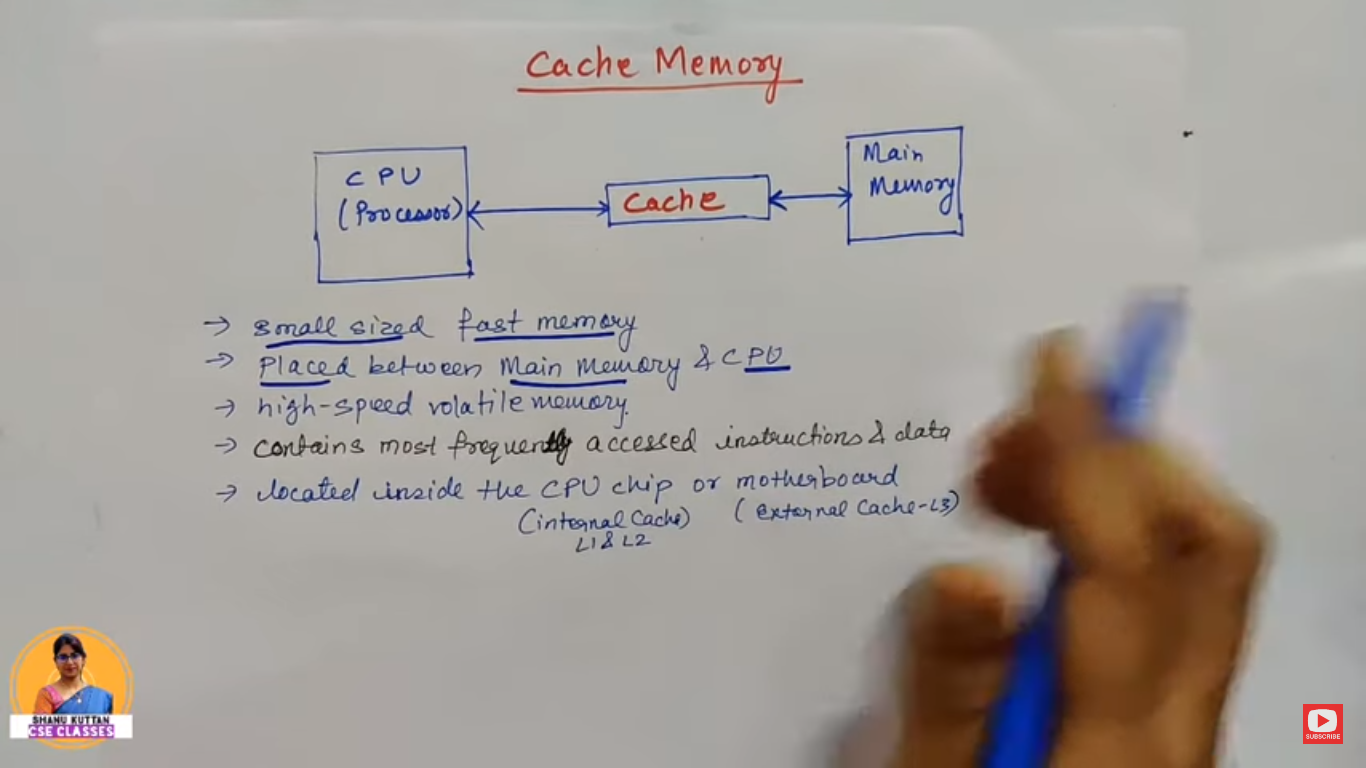 Cache Memory
CPU
(Processor)
Cache
Main
Memory
→ small sized fast memory
→ Placed between Main Memory & CPU
→ high-speed volatile memory.
→ contains most frequently accessed instructions & data
→ located inside the CPU chip or motherboard
(internal Cache) (External Cache-L3)
L1 & L2
SHANU KUTTAN
CSE CLASSES
SUBSCRIBE